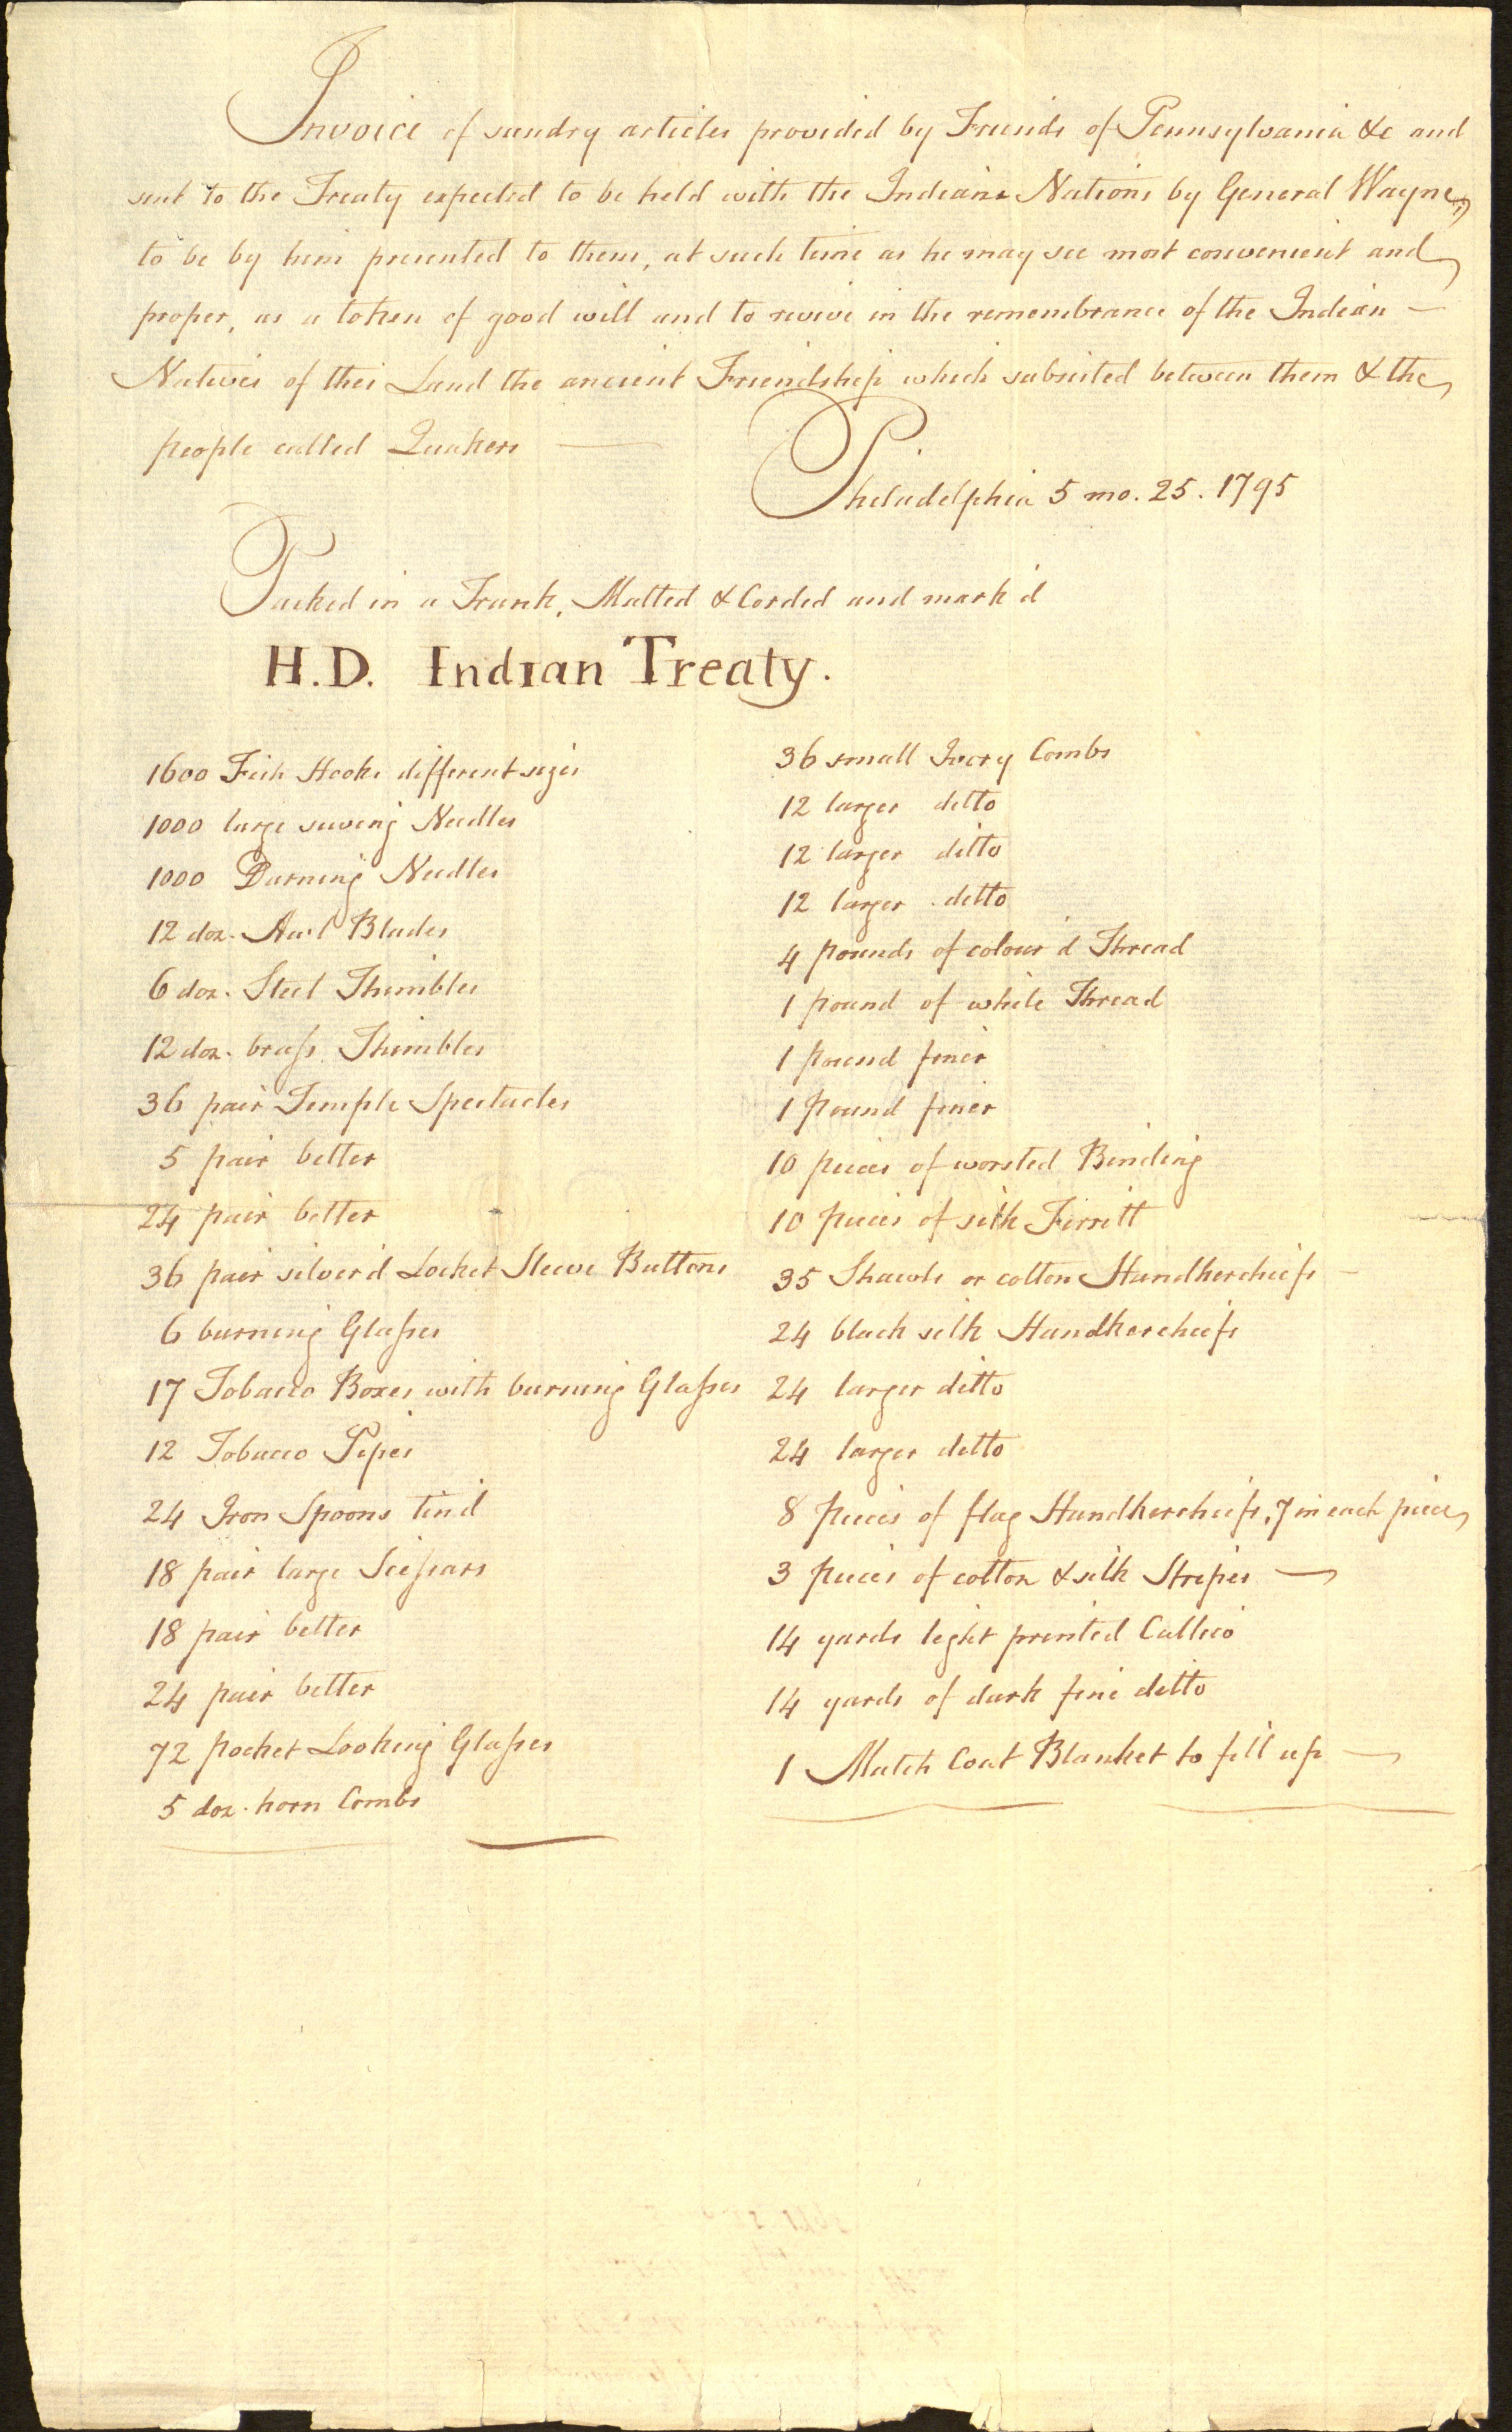 Invoice of sundry articles provided by Friends of Pennsylvania &c and
sent to the Treaty expected to be held with the Indian Nations by General Wayne,
to be by him presented to them, at such time as he may see most convenient and
proper, as a token of good will and to revive in the remembrance of the Indian —
Natives of this Land the ancient Friendship which subsisted between them & the
people called Quakers —
Philadelphia 5 mo. 25. 1795
Packed in a Trunk, Matted & Corded and mark'd
H.D. Indian Treaty.
1600 Fish Hooks different sizes
1000 large sewing Needles
1000 Darning Needles
12 doz. Awl Blades
6 doz. Steel Thimbles
12 doz. brass Thimbles
36 pair Temple Spectacles
5 pair better
24 pair better
36 pair silver'd Locket Sleeve Buttons
6 burning Glasses
17 Tobacco Boxes with burning Glasses
12 Tobacco Pipes
24 Iron Spoons tin'd
18 pair large Scissars
18 pair better
24 pair better
72 pocket Looking Glasses
5 doz. horn Combs
36 small Ivory Combs
12 larger ditto
12 larger ditto
12 larger ditto
4 pounds of colour'd Thread
1 pound of white Thread
1 pound finer
1 pound finer
10 pieces of worsted Binding
10 pieces of silk Ferritt
35 Shawls or cotton Handkerchiefs —
24 black silk Handkerchiefs
24 larger ditto
24 larger ditto
8 pieces of flag Handkerchiefs, 7 in each piece
3 pieces of cotton & silk Stripes —
14 yards light printed Callico
14 yards of dark fine ditto
1 Match Coat Blanket to fill up —